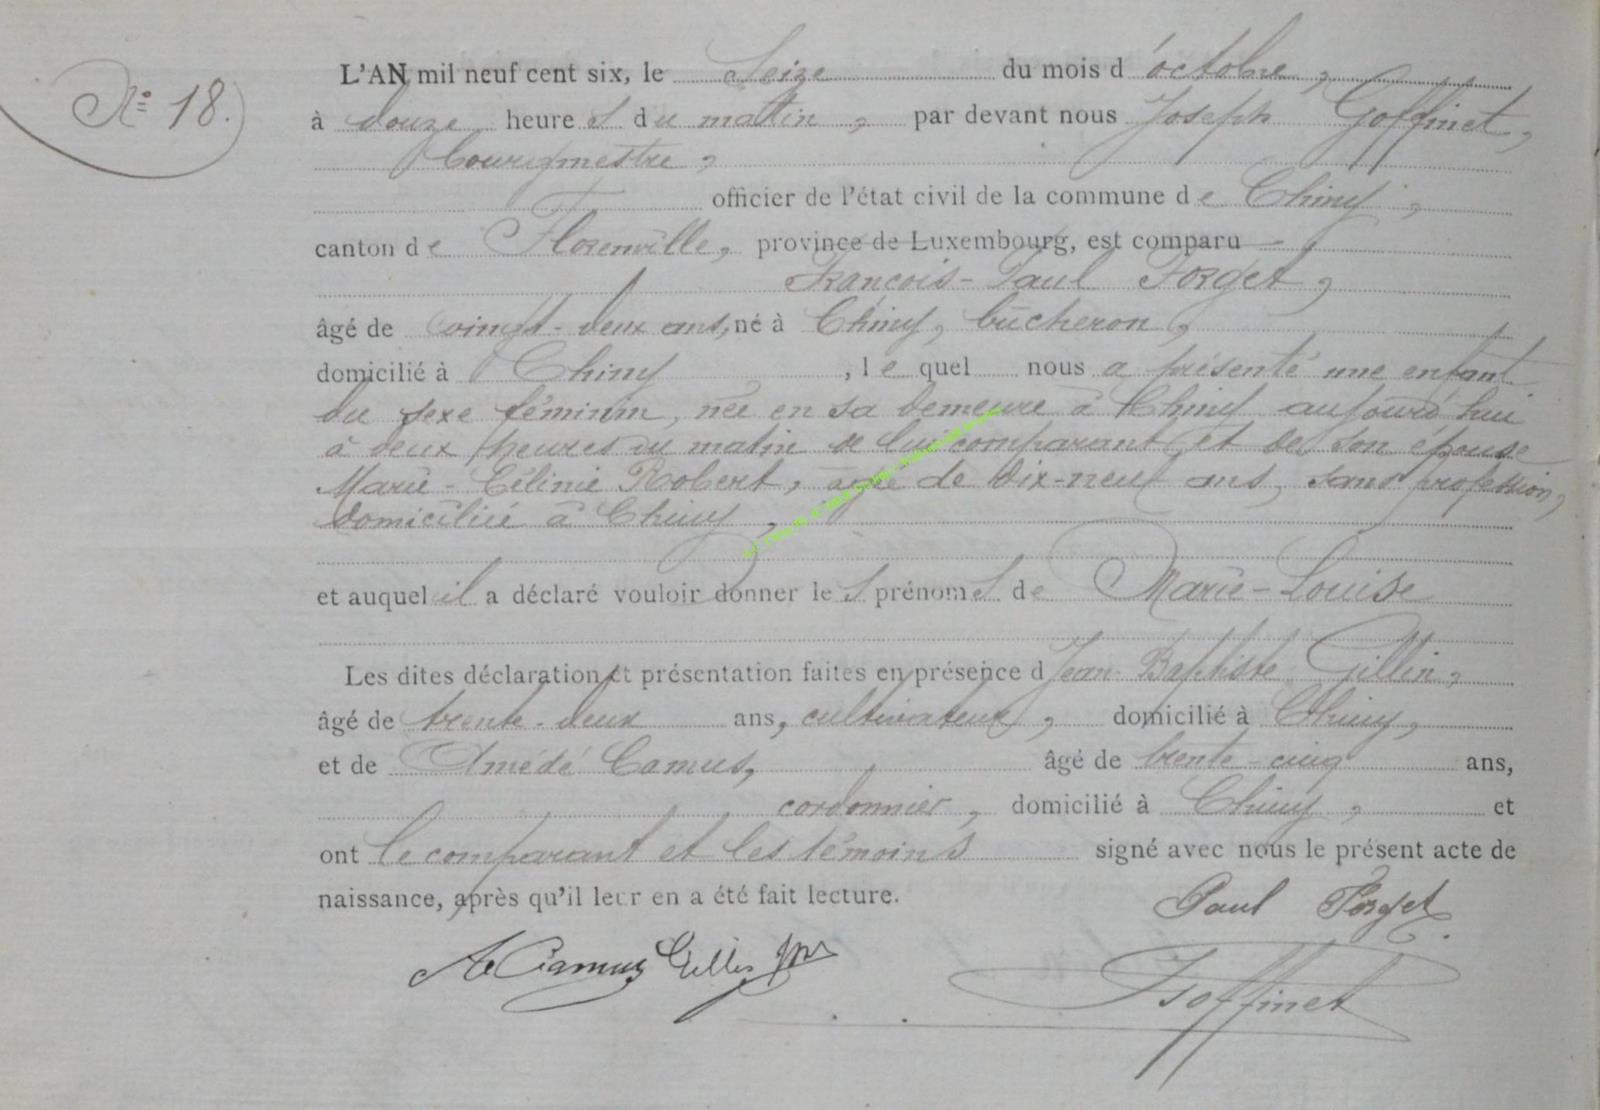 N° 18.
L'AN mil neuf cent six, le Seize du mois d'octobre,
à douze heures du mattin, par devant nous Joseph Goffinet,
bourgmestre,
officier de l'état civil de la commune de Chiny,
canton de Florenville, province de Luxembourg, est comparu
François-Paul Forget,
âgé de vingt-deux ans, né à Chiny, bûcheron,
domicilié à Chiny, lequel nous a présenté une enfant
du sexe féminin, née en sa demeure à Chiny aujourd'hui
à deux heures du matin de lui comparant et de son épouse
Marie-Célinie Robert, âgée de dix-neuf ans, sans profession,
domiciliée à Chiny,
et auquel il a déclaré vouloir donner les prénoms de Marie-Louise
Les dites déclaration et présentation faites en présence d Jean-Baptiste Gillin,
âgé de trente-deux ans, cultivateur, domicilié à Chiny,
et de Amédé Camus, âgé de trente-cinq ans,
cordonnier, domicilié à Chiny, et
ont le comparant et les témoins signé avec nous le présent acte de
naissance, après qu'il leur en a été fait lecture.
Paul Forget
A Camus Gillin
J Goffinet